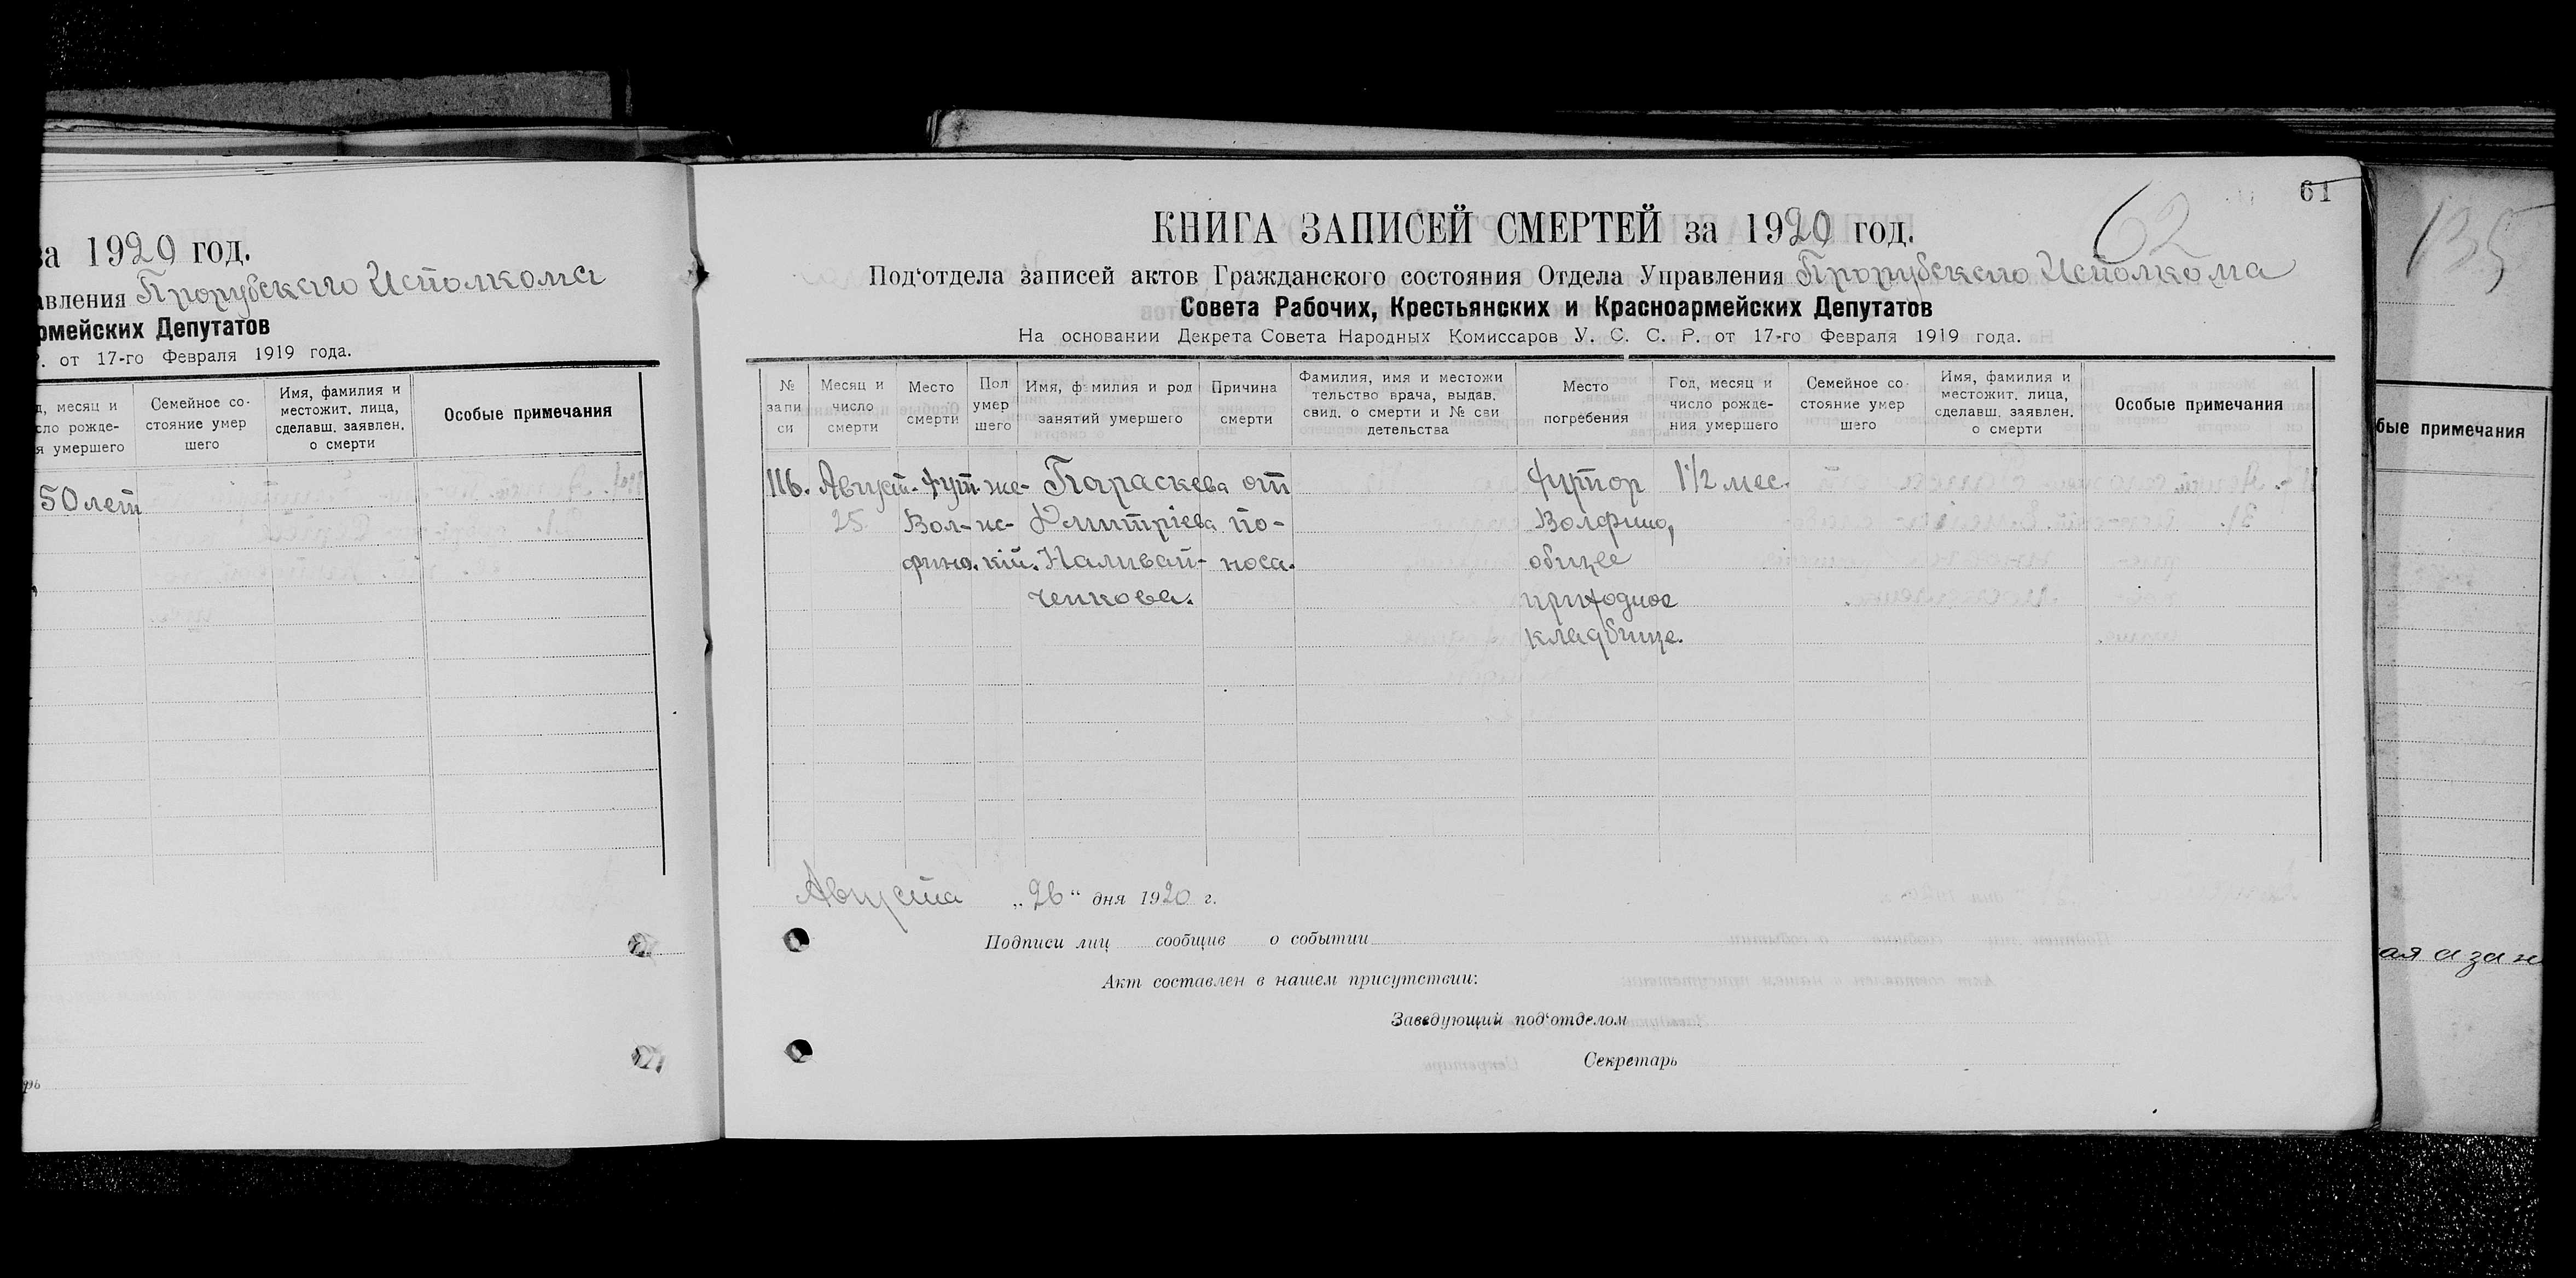 за 1920 год.
авления Прорубского Исполкома
рмейских Депутатов
Р. от 17-го Февраля 1919 года.
д, месяц и
сло рожде-
я умершего
Семейное со-
стояние умер
шего
Имя, фамилия и
местожит. лица,
сделавш. заявлен.
о смерти
Особые примечания
50 лет
рь
61
62
КНИГА ЗАПИСЕЙ СМЕРТЕЙ за 1920 год.
Под‘отдела записей актов Гражданского состояния Отдела Управления Прорубского Исполкома
Совета Рабочих, Крестьянских и Красноармейских Депутатов
На основании Декрета Совета Народных Комиссаров У. С. С. Р. от 17-го Февраля 1919 года.
№
запи
си
Месяц и
число
смерти
Место
смерти
Пол
умер
шего
Имя, фамилия и род
занятий умершего
Причина
смерти
Фамилия, имя и местожи
тельство врача, выдав.
свид. о смерти и № сви
детельства
Место
погребения
Год, месяц и
число рожде-
ния умершего
Семейное со-
стояние умер
шего
Имя, фамилия и
местожит. лица,
сделавш. заявлен.
о смерти
Особые примечания
116.
Август.
25
Фут.
Вол-
фино.
же-
нс-
кій.
Параскева
Димитріева
Наливай-
ченкова.
от
по-
носа.
Футор
Волфино,
общее
приходное
кладбище.
1 1/2 мес.
Августа „26“ дня 1920 г.
Подписи лиц сообщив о событии
Акт составлен в нашем присутствии:
Заведующий под‘отделом
Секретарь
135
бые примечания
ая а за н